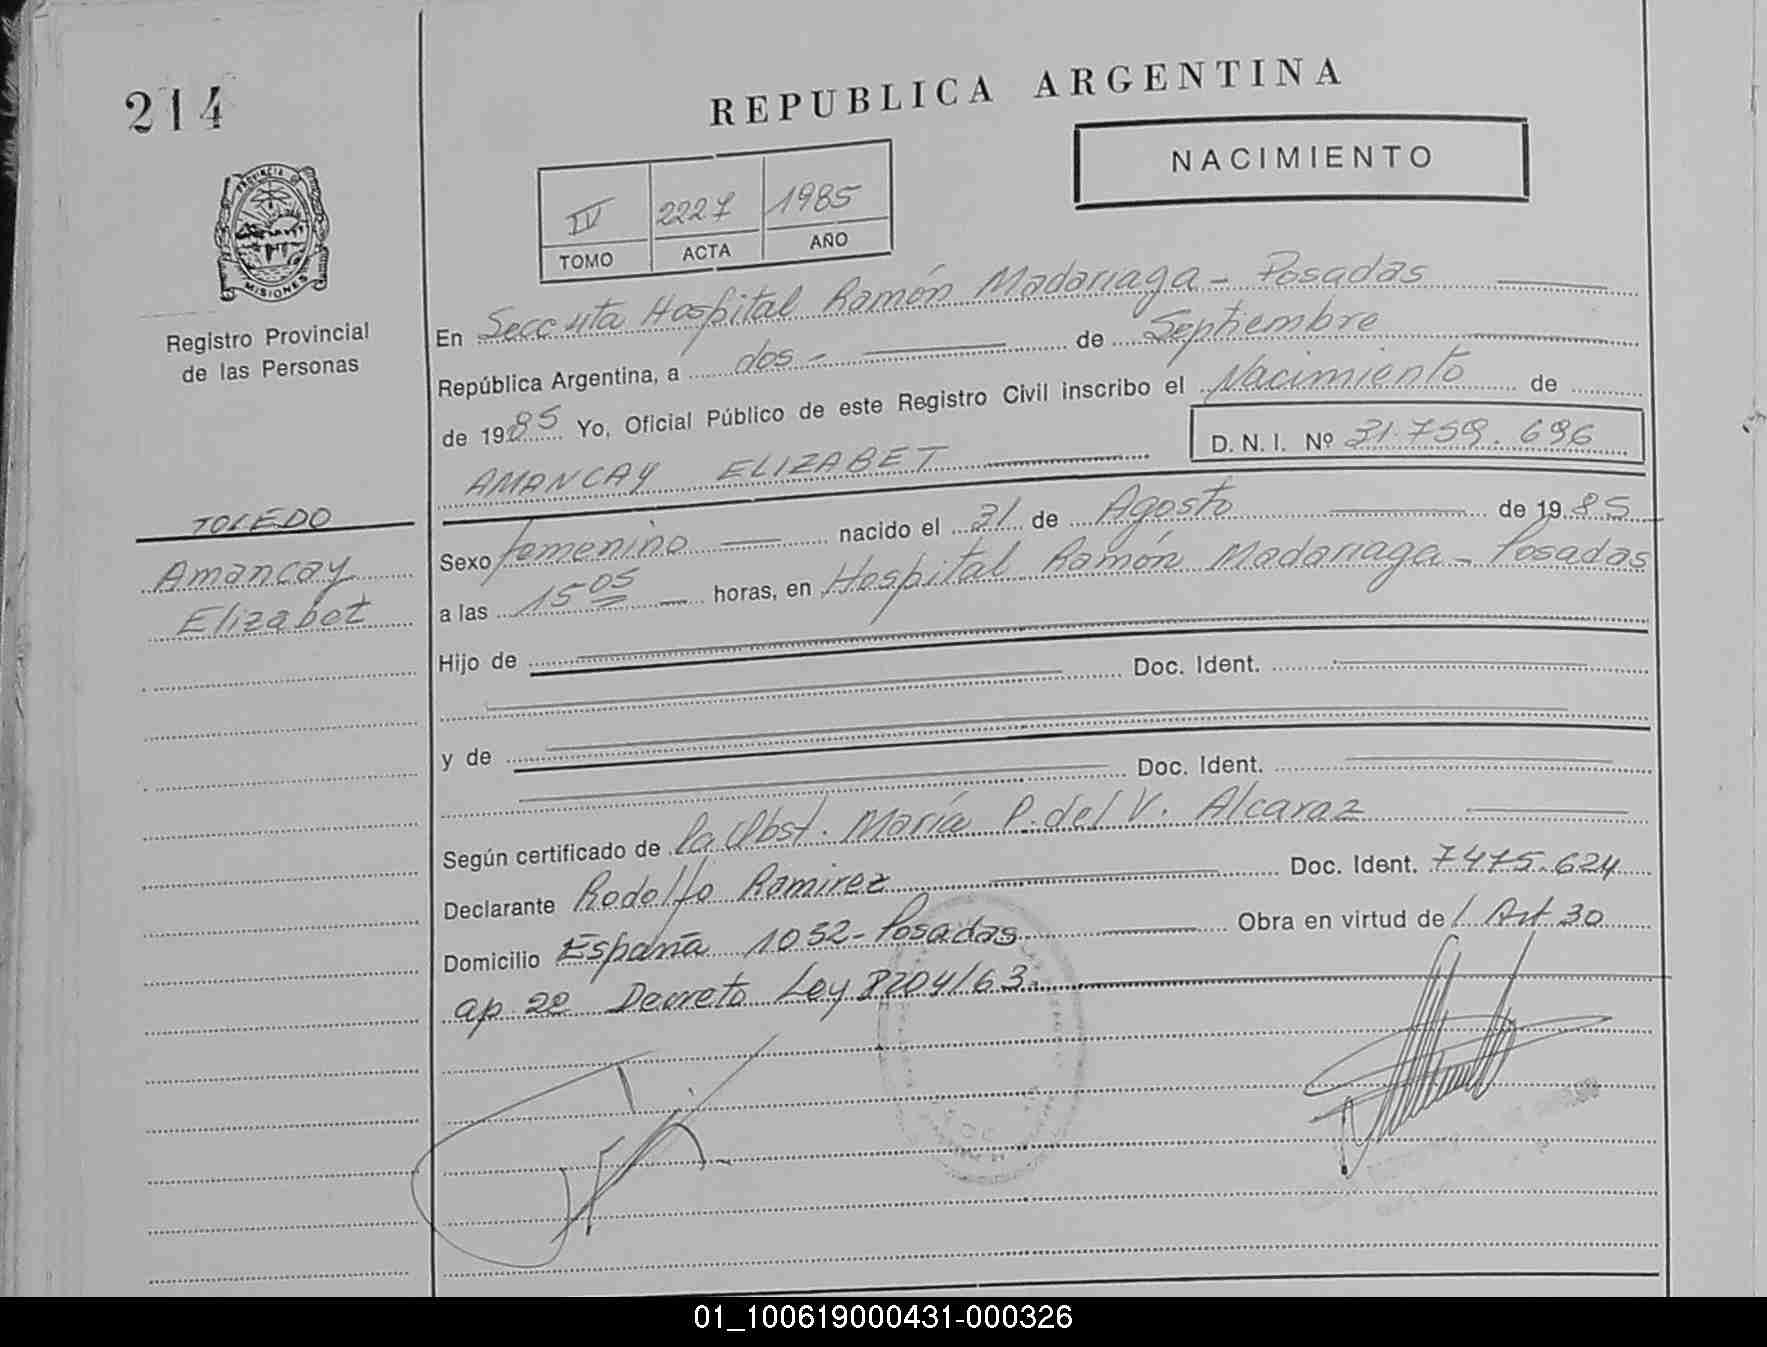 214
REPUBLICA ARGENTINA
NACIMIENTO
IV 2227 1985
TOMO ACTA AÑO
PROVINCIA DE
MISIONES
Registro Provincial
de las Personas
En Secc uta Hospital Ramón Madariaga - Posadas
República Argentina, a dos - de Septiembre
de 1985 Yo, Oficial Público de este Registro Civil inscribo el Nacimiento de
D. N. I. Nº 31.759.696
AMANCAY ELIZABET
TOLEDO
Amancay
Elizabet
Sexo femenino nacido el 31 de Agosto de 1985
a las 15 05 horas, en Hospital Ramón Madariaga - Posadas
Hijo de
Doc. Ident.
y de
Doc. Ident.
Según certificado de la Obst. María P. del V. Alcaraz
Declarante Rodolfo Ramirez Doc. Ident. 7475.624
Domicilio España 1052 - Posadas Obra en virtud de l Art 30
ap. 2º Decreto Ley 8204/63.
01_100619000431-000326